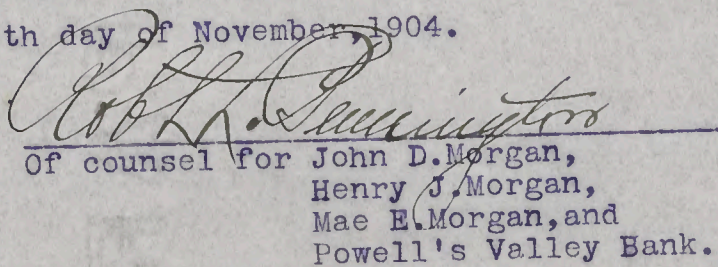 th day of November,1904.
Robt L. Pennington
Of counsel for John D.Morgan,
Henry J.Morgan,
Mae E.Morgan,and
Powell's Valley Bank.